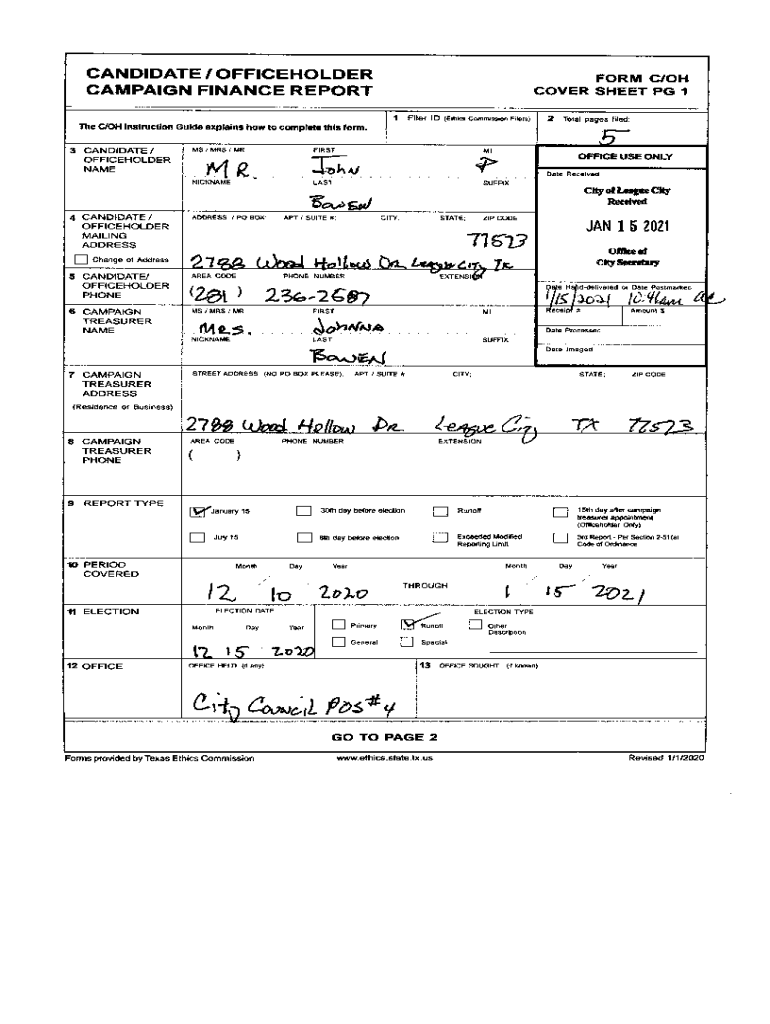 CANDIDATE / OFFICEHOLDER
CAMPAIGN FINANCE REPORT
FORM C/OH
COVER SHEET PG 1
The C/OH Instruction Guide explains how to complete this form.
1 Filer ID (Ethics Commission Filers)
2 Total pages filed:
5
3 CANDIDATE / OFFICEHOLDER NAME
MS / MRS / MR FIRST MI
MR. John P
NICKNAME LAST SUFFIX
Bowen
OFFICE USE ONLY
Date Received
City of League City
Received
JAN 15 2021
Office of
City Secretary
4 CANDIDATE / OFFICEHOLDER MAILING ADDRESS
Change of Address
ADDRESS / PO BOX; APT / SUITE #; CITY; STATE; ZIP CODE
77573
2788 Wood Hollow Dr League City Tx
5 CANDIDATE/ OFFICEHOLDER PHONE
AREA CODE PHONE NUMBER EXTENSION
(281) 236-2687
Date Hand-delivered or Date Postmarked
1/15/2021 10:46am
Receipt # Amount $
Date Processed
Date Imaged
6 CAMPAIGN TREASURER NAME
MS / MRS / MR FIRST MI
Mrs. Johnna
NICKNAME LAST SUFFIX
Bowen
7 CAMPAIGN TREASURER ADDRESS
(Residence or Business)
STREET ADDRESS (NO PO BOX PLEASE); APT / SUITE #; CITY; STATE; ZIP CODE
2788 Wood Hollow Dr League City TX 77573
8 CAMPAIGN TREASURER PHONE
AREA CODE PHONE NUMBER EXTENSION
( )
9 REPORT TYPE
January 15 30th day before election Runoff 15th day after campaign treasurer appointment (Officeholder Only)
July 15 8th day before election Exceeded Modified Reporting Limit 3rd Report - Per Section 2-51(a) Code of Ordinance
10 PERIOD COVERED
Month Day Year Month Day Year
12 10 2020 THROUGH 1 15 2021
11 ELECTION
ELECTION DATE ELECTION TYPE
Month Day Year
Primary Runoff Other Description
General Special
12 15 2020
12 OFFICE
OFFICE HELD (if any)
13 OFFICE SOUGHT (if known)
City Council Pos #4
GO TO PAGE 2
Forms provided by Texas Ethics Commission www.ethics.state.tx.us Revised 1/1/2020